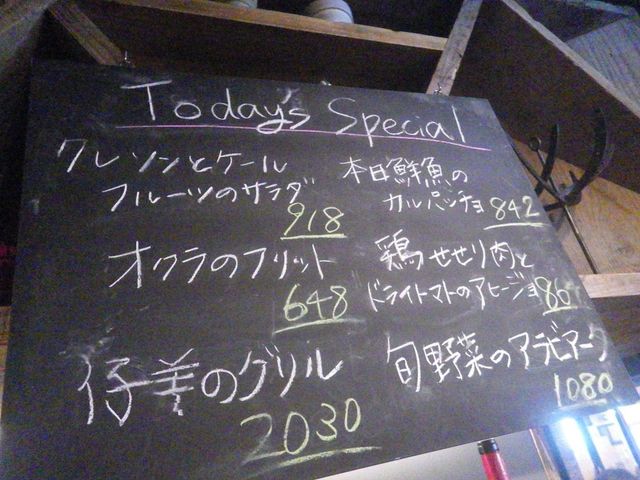 Today's Special
クレソンとケール
フルーツのサラダ
918
オクラのフリット
648
仔羊のグリル
2030
本日鮮魚の
カルパッチョ 842
鶏せせり肉と
ドライトマトのアヒージョ
旬野菜のアラビアータ
1080